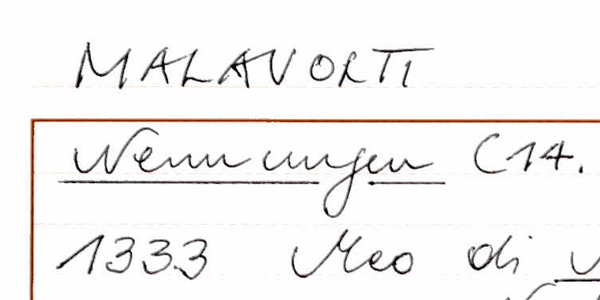 MALAVOLTI
Nennungen (14.
1333 Meo di